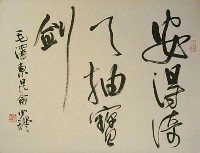 安得倚
天抽寶
劍
毛澤東昆侖